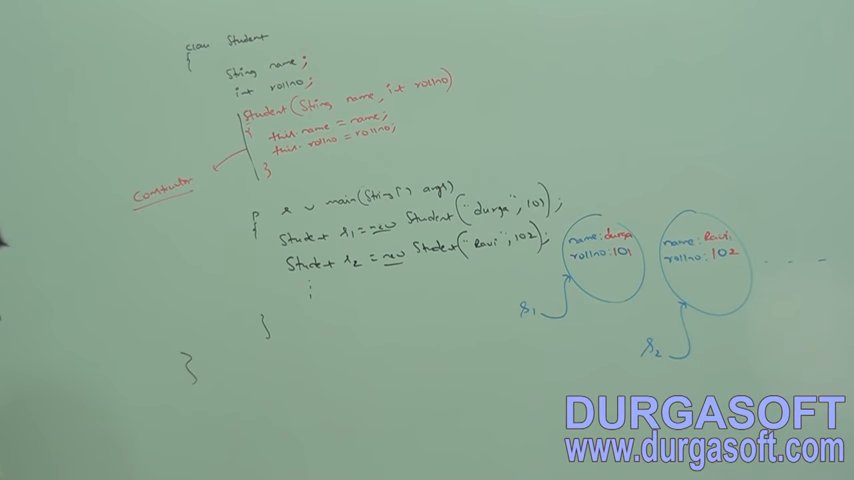 class Student
{
String name;
int rollno;
Student(String name, int rollno)
{
this.name = name;
this.rollno = rollno;
}
Constructor
p s v main(String[] args)
{
Student s1 = new Student("durga", 101);
Student s2 = new Student("Ravi", 102);
}
}
name: durga
rollno: 101
name: Ravi
rollno: 102
s1
s2
DURGASOFT
www.durgasoft.com